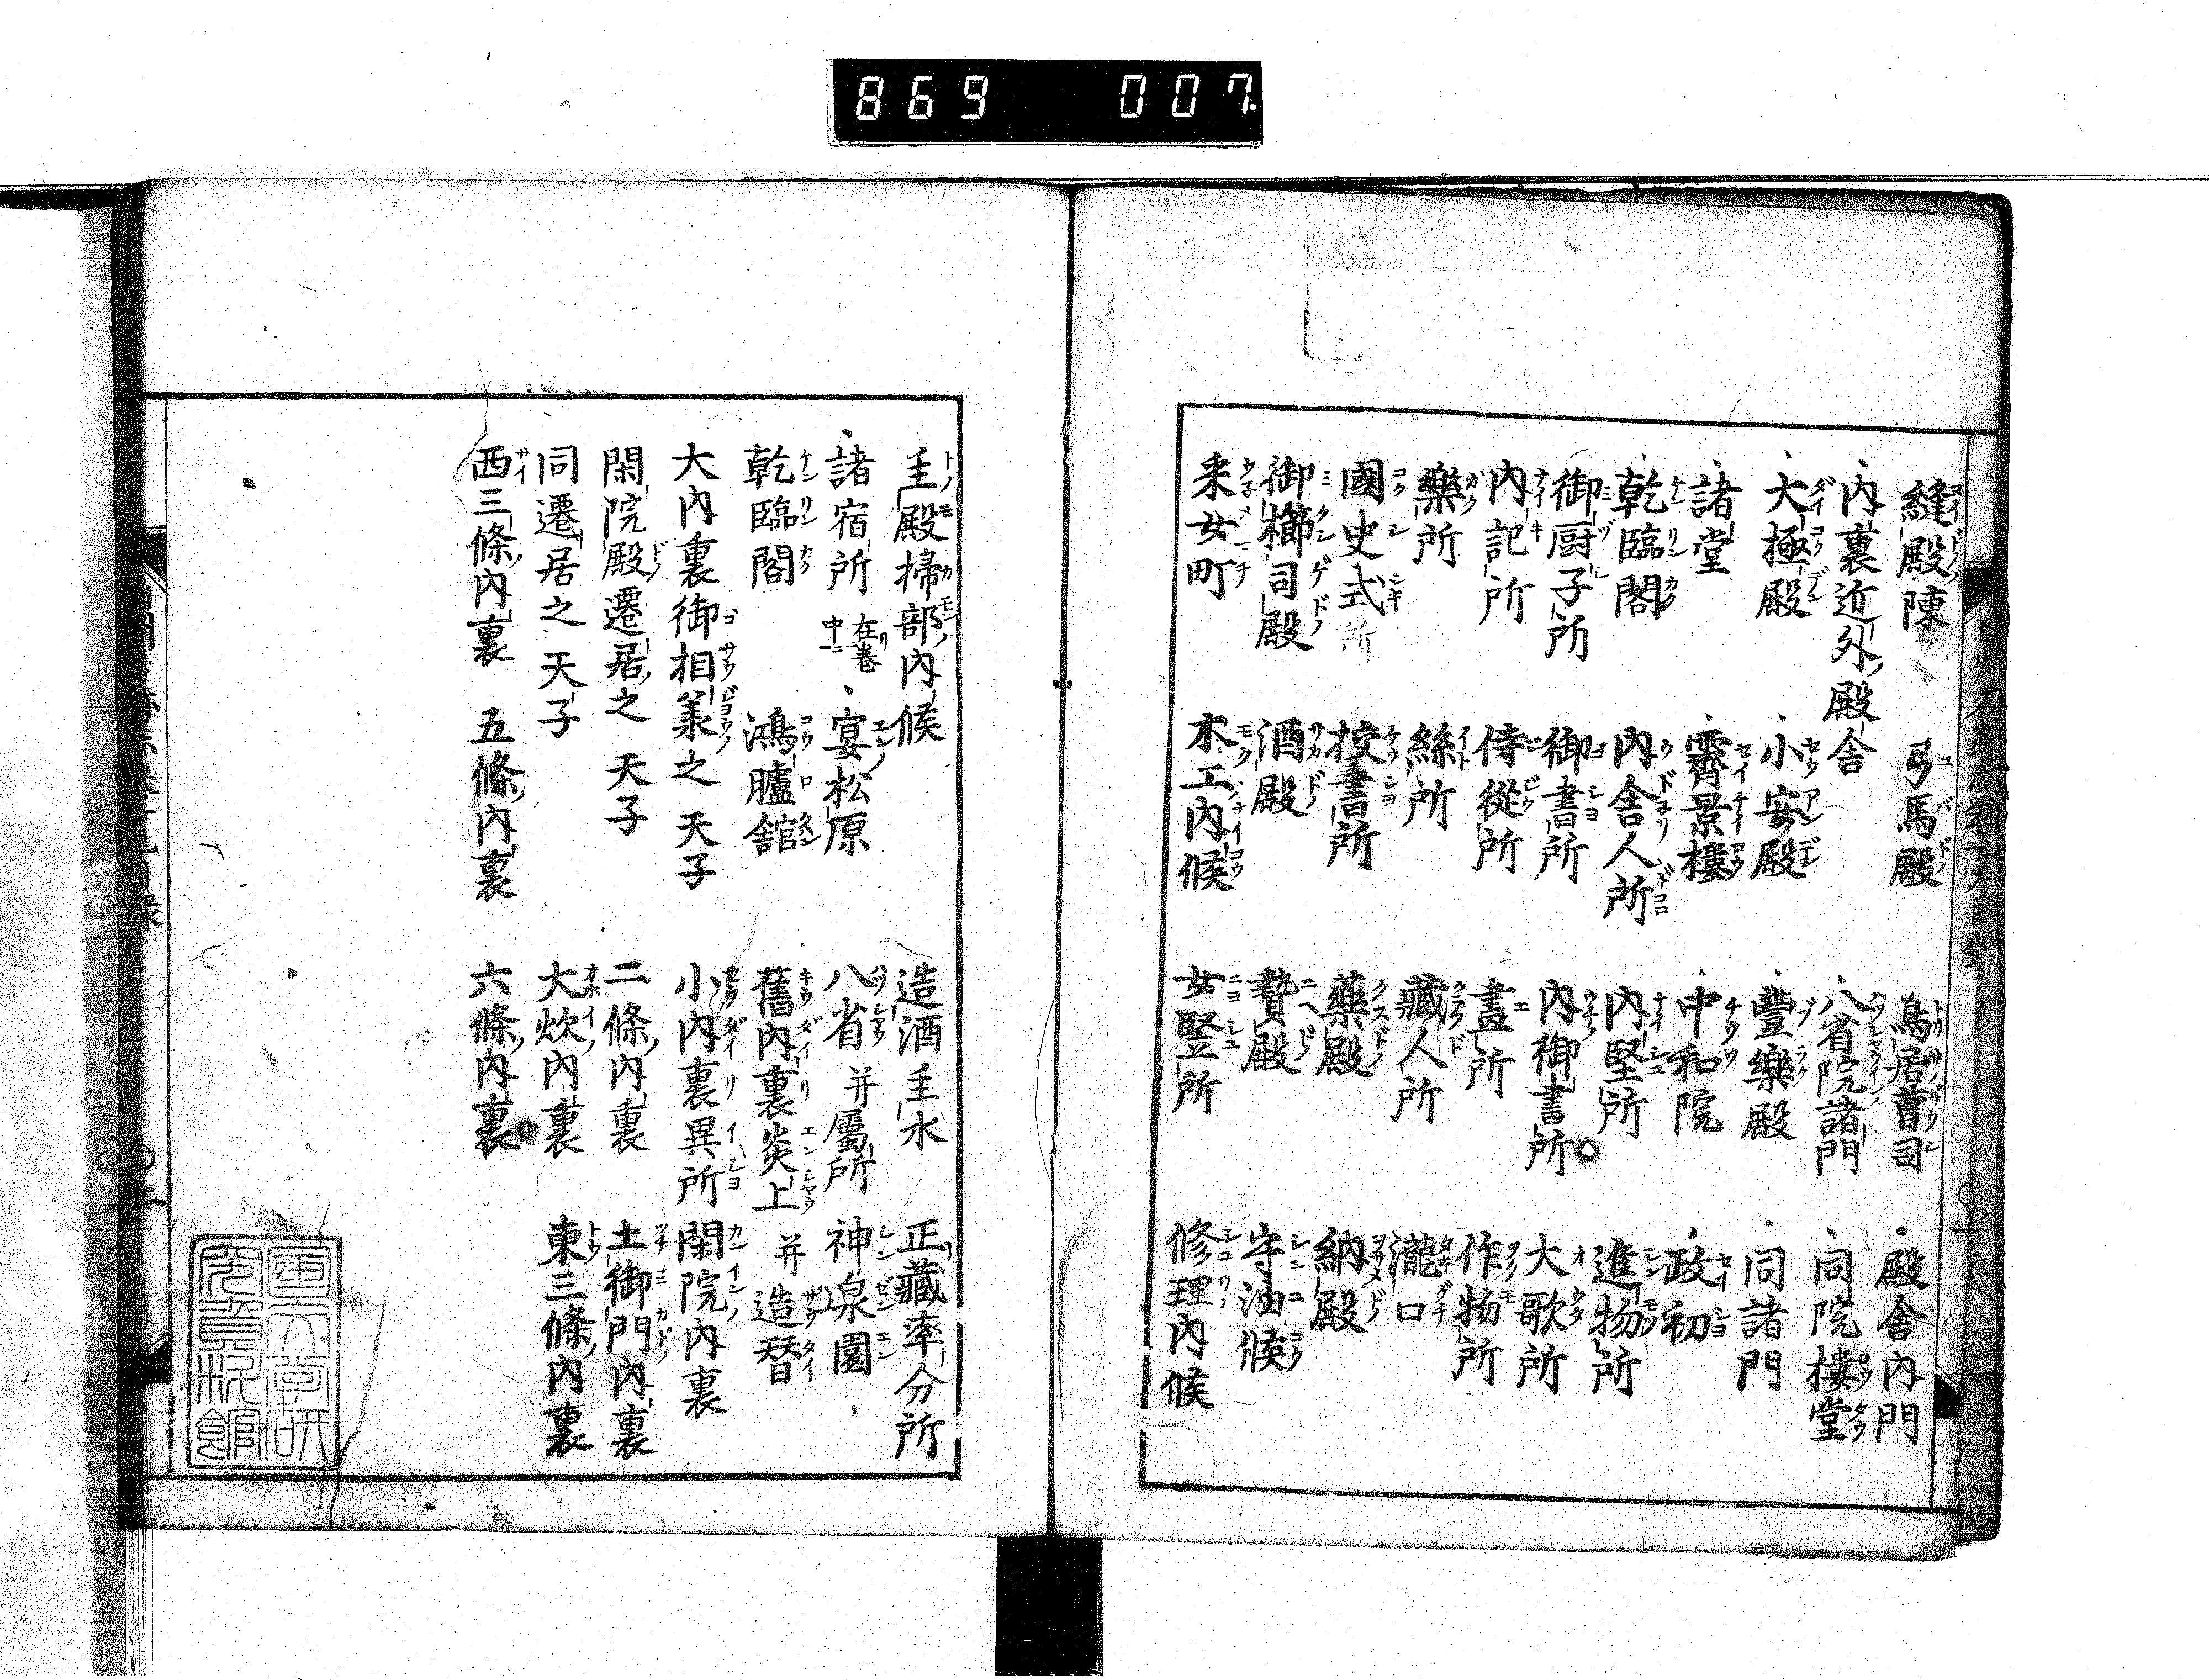 869 007
縫殿陳 弓馬殿 鳥居曹司 殿舎內門
內裏近外殿舎 八省院諸門 同院樓堂
大極殿 小安殿 豐樂殿 同諸門
諸堂 霽景樓 中和院 政初
乾臨閣 內舎人所 內竪所 進物所
御厨子所 御書所 內御書所 大歌所
內記所 侍從所 畫所 作物所
樂所 絲所 藏人所 瀧口
國史式所 挍書所 藥殿 納殿
御櫛司殿 酒殿 贄殿 守油候
采女町 木工內候 女竪所 修理內候
主殿掃部內候 造酒主水 正藏率分所
諸宿所 在巻中ニ 宴松原 八省并屬所 神泉園
乾臨閣 鴻臚舘 舊內裏炎上并造替
大內裏御相羕之天子 小內裏異所 閑院內裏
閑院殿遷居之天子 二條內裏 土御門內裏
同遷居之天子 大炊內裏 東三條內裏
西三條內裏 五條內裏 六條內裏